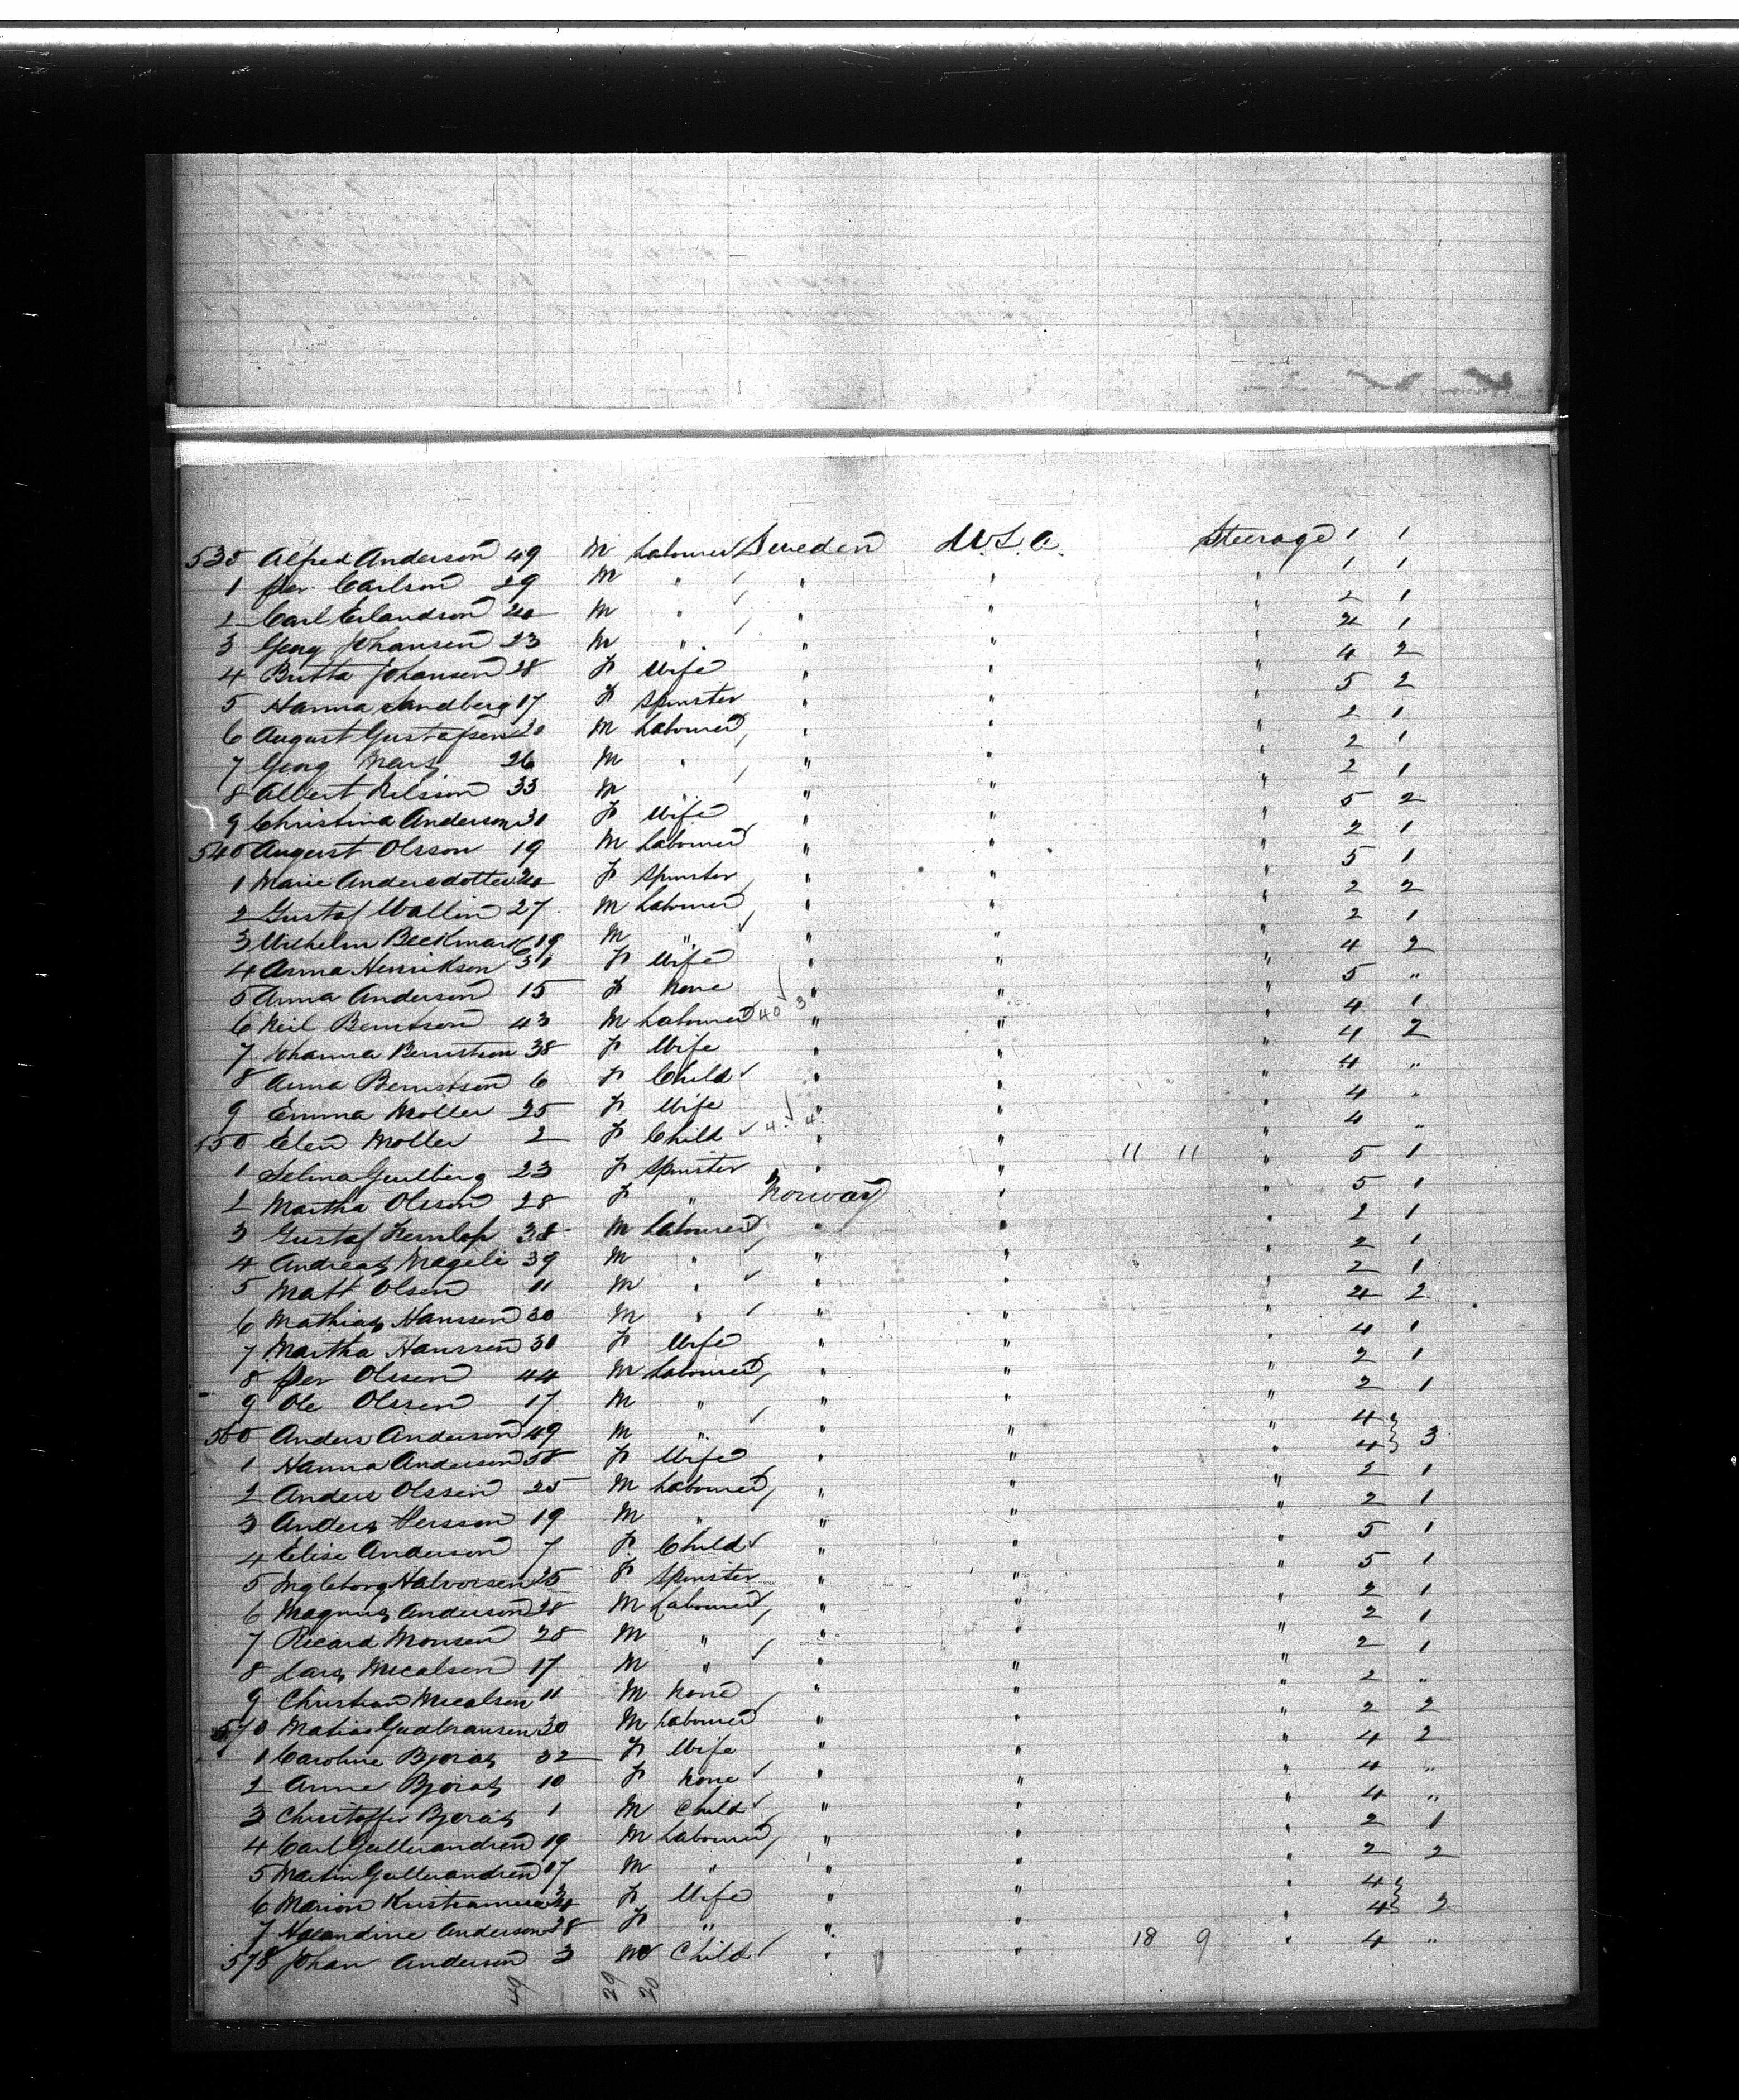 530 Alfred Anderson 49 M Labourer Sweden U.S.A. Steerage 1 1
1 Per Carlson 29 M " " " " 1 1
2 Carl Erlandson 20 M " " " " 2 1
3 Georg Johansen 23 M " " " " 4 1
4 Britta Johansen 28 F Wife " " " 4 2
5 Hanna Sandberg 17 F Spinster " " " 5 2
6 August Gustafsen 20 M Labourer " " " 2 1
7 Georg 26 M " " " " 2 1
8 Albert Nilsson 33 M " " " " 2 1
9 Christina Anderson 30 F Wife " " " 5 2
540 August Olsson 19 M Labourer " " " 2 1
1 Marie Andersdotter 20 F Spinster " " " 5 1
2 Gustaf Wallin 27 M Labourer " " " 2 2
3 Wilhelm Beckmark 19 M " " " " 2 1
4 Anna Henrikson 31 F Wife " " " 4 2
5 Anna Anderson 15 F None " " " 5 "
6 Neil Berntson 43 M Labourer 40 3 " " " 4 1
7 Johanna Berntson 38 F Wife " " " 4 2
8 Anna Berntson 6 F Child " " " 4 "
9 Emma Moller 25 F Wife " " " 4 "
550 Elen Moller 2 F Child 4 4 " " 11 11 " 4 "
1 Selma 23 F Spinster " " " 5 1
2 Martha Olsson 28 F " Norway " " 5 1
3 Gustaf 38 M Labourer " " " 2 1
4 Andreas Mageli 39 M " " " " 2 1
5 Matt Olsen 11 M " " " " 2 1
6 Mathias Hanssen 30 M " " " " 4 2
7 Martha Hanssen 30 F Wife " " " 4 1
8 Per Olssen 44 M Labourer " " " 2 1
9 Ole Olssen 17 M " " " " 2 1
560 Anders Anderson 49 M " " " " 4
1 Hanna Anderson 58 F Wife " " " 4 3
2 Anders Olssen 25 M Labourer " " " 2 1
3 Anders Persson 19 M " " " " 2 1
4 Elise Anderson 7 F Child " " " 5 1
5 Ingleborg Halvorsen 25 F Spinster " " " 5 1
6 Magnus Anderson 28 M Labourer " " " 2 1
7 Ricard Monsen 28 M " " " " 2 1
8 Lars Micalsen 17 M " " " " 2 1
9 Christian Micalsen 11 M None " " " 2 "
570 Matias Gudbransen 30 M Labourer " " " 2 2
1 Caroline Bjoras 32 F Wife " " " 4 2
2 Anne Bjoras 10 F None " " " 4 "
3 Christoffer Bjoras 1 M Child " " " 4 "
4 Carl Gulbrandsen 19 M Labourer " " " 2 1
5 Martin Gulbrandsen 17 M " " " " 2 2
6 Marion F Wife " " " 4
7 Anderson 28 F " " " " 4 2
578 Johan Anderson 3 M Child " " 18 9 " 4 "
49 29 20